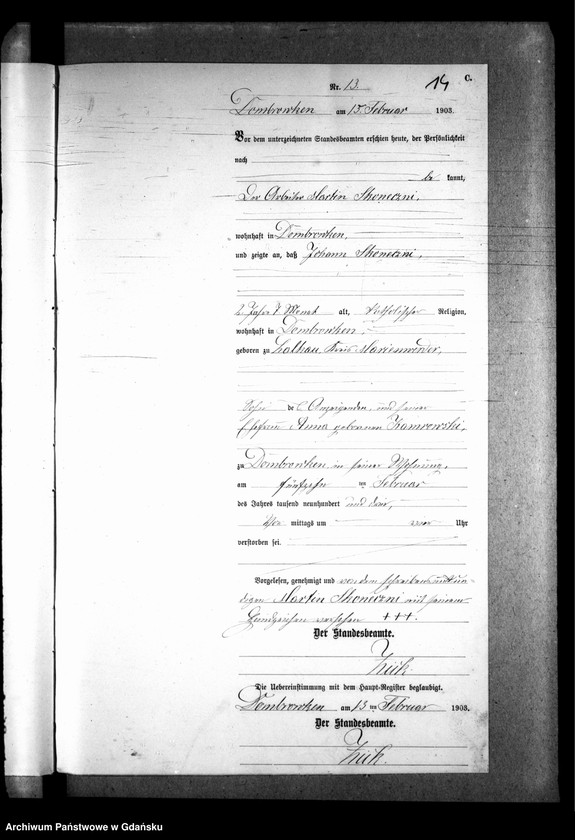 Nr. 13. 14 C.
Dombrowken am 15 Februar 1903.
Vor dem unterzeichneten Standesbeamten erschien heute, der Persönlichkeit
nach
be kannt,
Der Arbeiter Martin Skoneczni,
wohnhaft in Dombrowken,
und zeigte an, daß Johann Skoneczni,
Jahr 7 Monat alt, katholischer Religion,
wohnhaft in Dombrowken,
geboren zu Lalkau, Kreis Marienwerder,
Sohn des Anzeigenden und seiner
Ehefrau Anna geborenen
zu Dombrowken in seiner Wohnung,
am fünfzehn ten Februar
des Jahres tausend neunhundert und drei,
Vor mittags um Uhr
verstorben sei.
Vorgelesen, genehmigt und von dem schreibensunkun-
digen Martin Skoneczni mit seinem
Handzeichen versehen +++.
Der Standesbeamte.
Zuch
Die Uebereinstimmung mit dem Haupt-Register beglaubigt.
Dombrowken am 15 ten Februar 1903.
Der Standesbeamte.
Zuch.
Archiwum Państwowe w Gdańsku